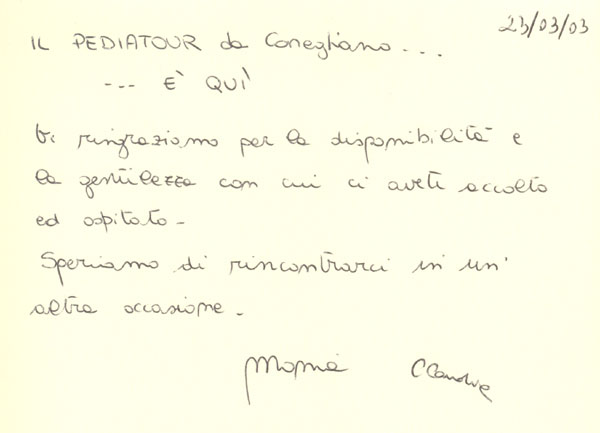 23/03/03
IL PEDIATOUR da Conegliano...
... È QUÌ
Vi ringraziamo per la disponibilità e
la gentilezza con cui ci avete accolto
ed ospitato -
Speriamo di rincontrarci in un'
altra occasione.